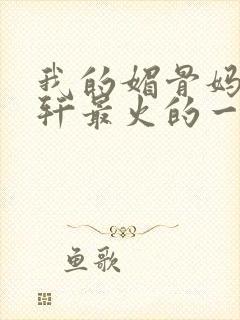 我的媚骨妈
轩最火的一
鱼歌